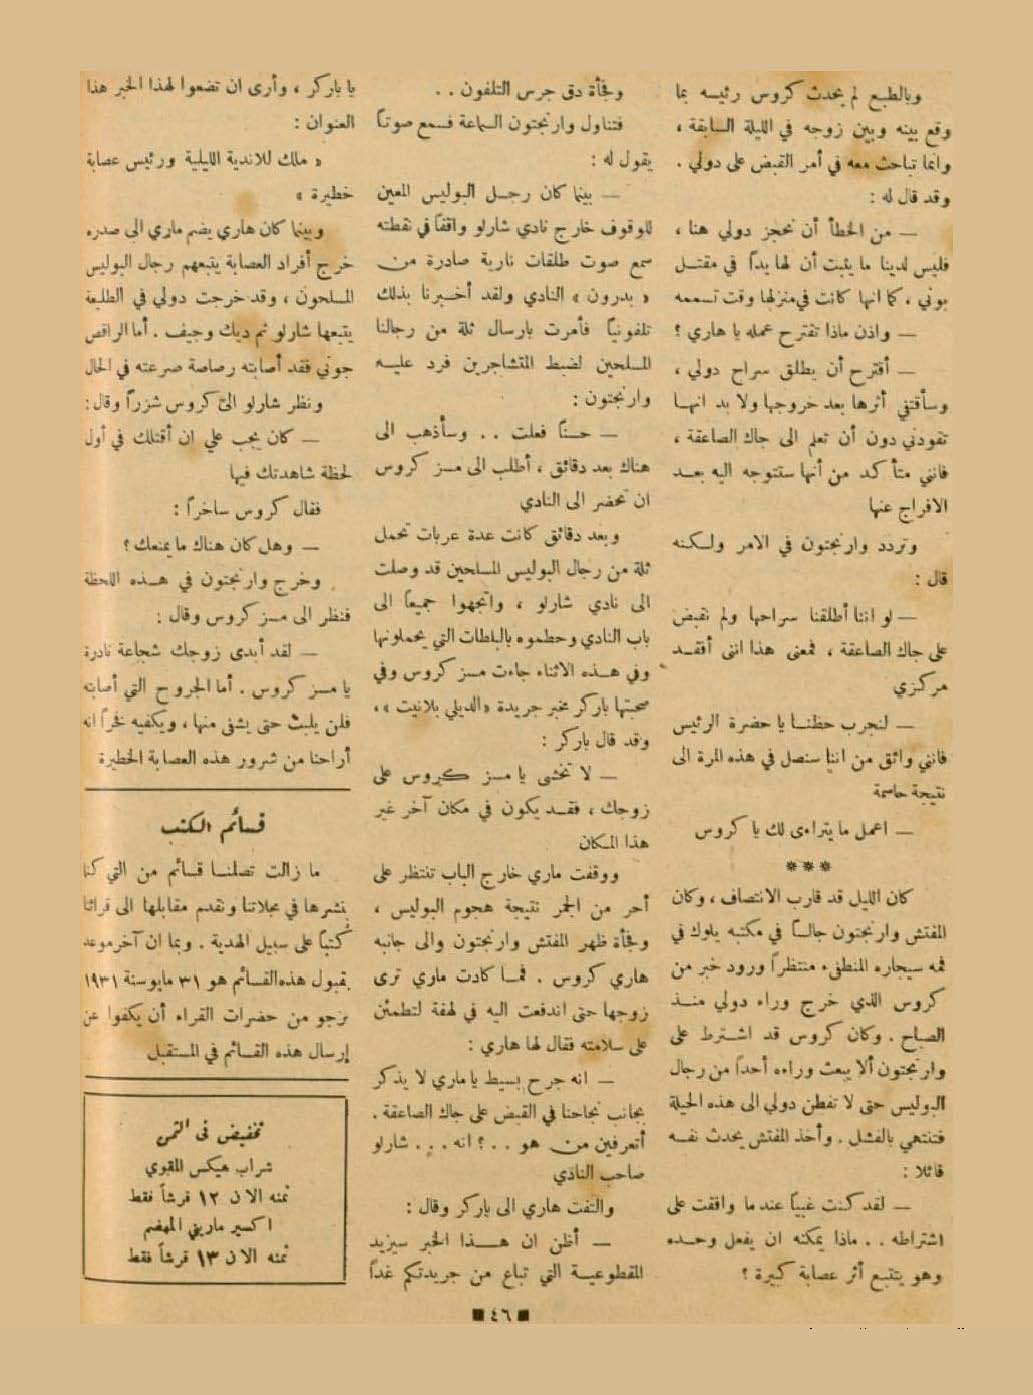 وبالطبع لم يحدث كروس رئيسه بما
وقع بينه وبين زوجه في الليلة السابقة ،
وانما تباحث معه في أمر القبض على دولي .
وقد قال له :
— من الخطأ أن نحجز دولي هنا ،
فليس لدينا ما يثبت أن لها يداً في مقتل
بوني ، كما انها كانت في منزلها وقت تسممه
— واذن ماذا تقترح عمله يا هاري ؟
— أقترح أن يطلق سراح دولي ،
وسأقتفي أثرها بعد خروجها ولا بد انها
تقودني دون أن تعلم الى جاك الصاعقة ،
فانني متأكد من أنها ستتوجه اليه بعد
الافراج عنها
وتردد وارنجتون في الامر ولكنه
قال :
— لو اننا أطلقنا سراحها ولم نقبض
على جاك الصاعقة ، فمعنى هذا انني أفقد
مركزي
— لنجرب حظنا يا حضرة الرئيس
فانني واثق من اننا سنصل في هذه المرة الى
نتيجة حاسمة
— اعمل ما يتراءى لك يا كروس
***
كان الليل قد قارب الانتصاف ، وكان
المفتش وارنجتون جالساً في مكتبه يلوك في
فمه سيجاره المنطفىء منتظراً ورود خبر من
كروس الذي خرج وراء دولي منذ
الصباح . وكان كروس قد اشترط على
وارنجتون ألا يبعث وراءه أحداً من رجال
البوليس حتى لا تفطن دولي الى هذه الحيلة
فتنتهي بالفشل . وأخذ المفتش يحدث نفسه
قائلا :
— لقد كنت غبياً عند ما وافقت على
اشتراطه . . ماذا يمكنه ان يفعل وحده
وهو يتتبع أثر عصابة كبيرة ؟
وفجأة دق جرس التلفون . .
فتناول وارنجتون السماعة فسمع صوتاً
يقول له :
— بينما كان رجل البوليس المعين
للوقوف خارج نادي شارلو واقفاً في نقطته
سمع صوت طلقات نارية صادرة من
« بدرون » النادي ولقد أخبرنا بذلك
تلفونياً فأمرت بارسال ثلة من رجالنا
المسلحين لضبط المتشاجرين فرد عليه
وارنجتون :
— حسناً فعلت . . وسأذهب الى
هناك بعد دقائق ، أطلب الى مسز كروس
ان تحضر الى النادي
وبعد دقائق كانت عدة عربات تحمل
ثلة من رجال البوليس المسلحين قد وصلت
الى نادي شارلو ، واتجهوا جميعاً الى
باب النادي وحطموه بالبلطات التي يحملونها
وفي هذه الاثناء جاءت مسز كروس وفي
صحبتها باركر مخبر جريدة «الديلي بلانيت» ،
وقد قال باركر :
— لا تخشى يا مسز كروس على
زوجك ، فقد يكون في مكان آخر غير
هذا المكان
ووقفت ماري خارج الباب تنتظر على
أحر من الجمر نتيجة هجوم البوليس ،
وفجأة ظهر المفتش وارنجتون والى جانبه
هاري كروس . فما كادت ماري ترى
زوجها حتى اندفعت اليه في لهفة لتطمئن
على سلامته فقال لها هاري :
— انه جرح بسيط يا ماري لا يذكر
بجانب نجاحنا في القبض على جاك الصاعقة .
أتعرفين من هو . . ؟ انه . . . شارلو
صاحب النادي
والتفت هاري الى باركر وقال :
— أظن ان هذا الخبر سيزيد
المقطوعية التي تباع من جريدتكم غداً
يا باركر ، وأرى ان تضعوا لهذا الخبر هذا
العنوان :
« ملك للاندية الليلية ورئيس عصابة
خطيرة »
وبينما كان هاري يضم ماري الى صدره
خرج أفراد العصابة يتبعهم رجال البوليس
المسلحون ، وقد خرجت دولي في الطليعة
يتبعها شارلو ثم ديك وجيف . أما الراقص
جوني فقد أصابته رصاصة صرعته في الحال
ونظر شارلو الى كروس شزراً وقال :
— كان يجب علي ان أقتلك في أول
لحظة شاهدتك فيها
فقال كروس ساخراً :
— وهل كان هناك ما يمنعك ؟
وخرج وارنجتون في هذه اللحظة
فنظر الى مسز كروس وقال :
— لقد أبدى زوجك شجاعة نادرة
يا مسز كروس . أما الجروح التي أصابته
فلن يلبث حتى يشفى منها ، ويكفيه فخراً انه
أراحنا من شرور هذه العصابة الخطيرة
قسائم الكتب
ما زالت تصلنا قسائم من التي كنا
ننشرها في مجلاتنا ونقدم مقابلها الى قرائنا
كُتباً على سبيل الهدية . وبما ان آخر موعد
لقبول هذه القسائم هو ٣١ مايو سنة ١٩٣١
نرجو من حضرات القراء أن يكفوا عن
إرسال هذه القسائم في المستقبل
تخفيض في الثمن
شراب هيكس المقوي
ثمنه الان ١٢ قرشاً فقط
اكسير ماريني المهضم
ثمنه الان ١٣ قرشاً فقط
■ ٤٦ ■